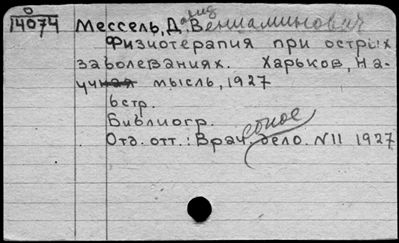 О
14074
Мессель, Давид Вениаминович
Физиотерапия при острых
заболеваниях. Харьков, На-
учная мысль, 1927
6стр.
Библиогр.
Отд. отт.: Врачебное дело. N11 1927